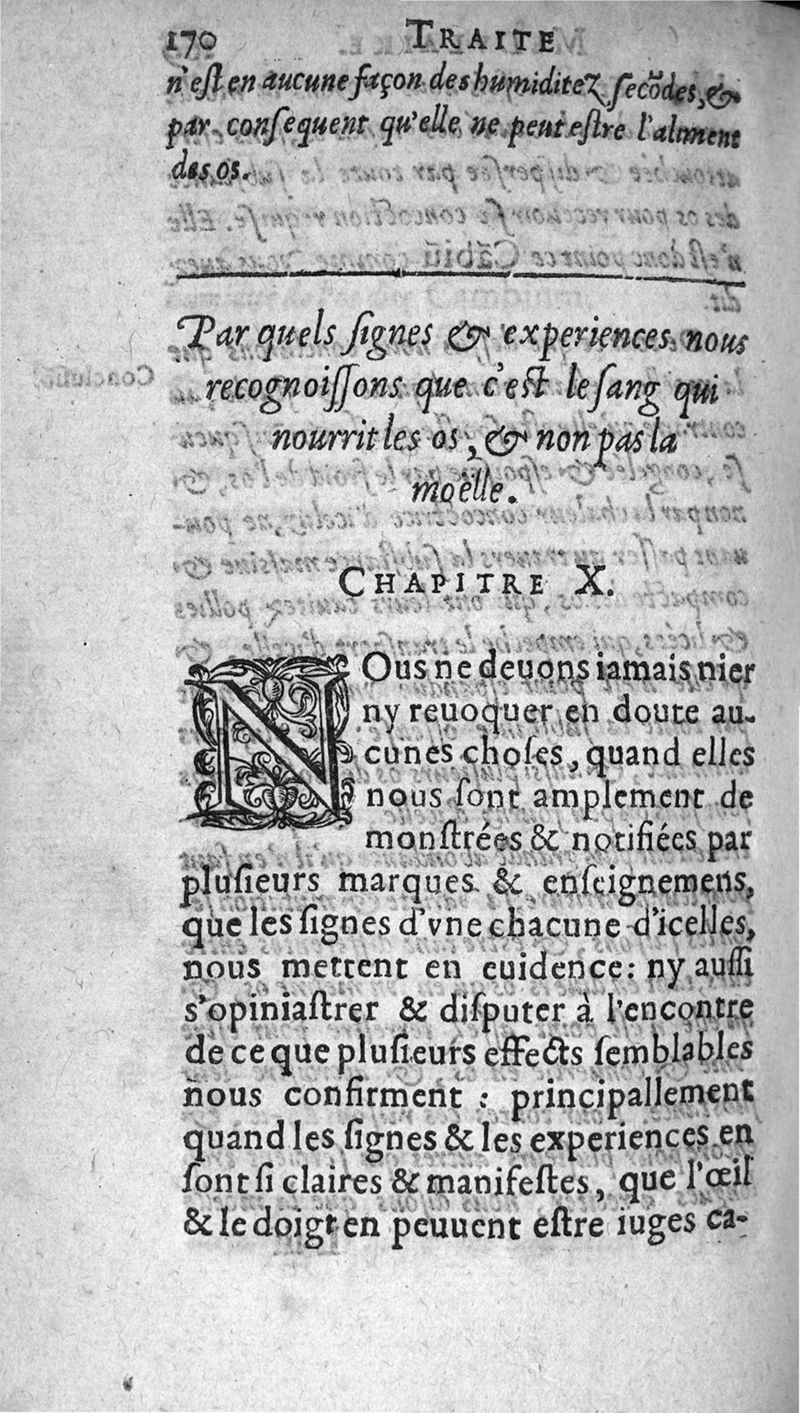 170 TRAITE
n'eſt en aucune façon des humiditez ſecõdes, &
par conſequent qu'elle ne peut eſtre l'aliment
des os.
Par quels ſignes & experiences nous
recognoiſſons que c'eſt le ſang qui
nourrit les os, & non pas la
moëlle.
CHAPITRE X.
NOus ne deuons iamais nier
ny reuoquer en doute au-
cunes choſes, quand elles
nous ſont amplement de
monſtrées & notifiées par
pluſieurs marques & enſeignemens,
que les ſignes d'vne chacune d'icelles,
nous mettent en euidence: ny auſſi
s'opiniaſtrer & diſputer à l'encontre
de ce que pluſieurs effects ſemblables
nous confirment : principallement
quand les ſignes & les experiences en
ſont ſi claires & manifeſtes, que l'œil
& le doigt en peuuent eſtre iuges ca-